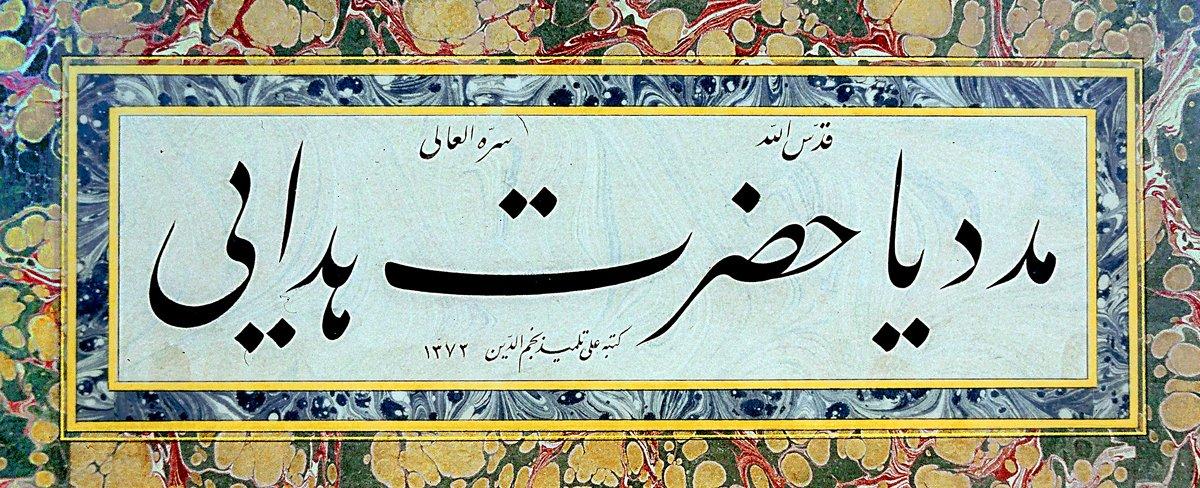 قدّس اللّه سرّه العالى
مدد يا حضرت هدایی
كتبه على تلميذ نجم الدّين ١٣٧٣